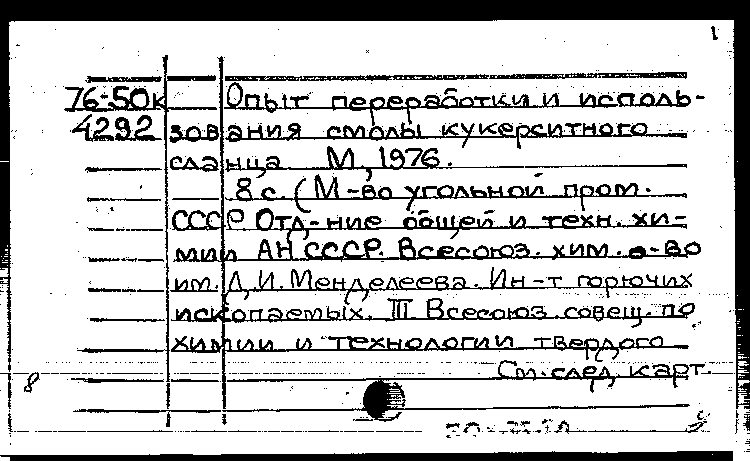 1
76-50к Опыт переработки и исполь-
4292 зования смолы кукерситного
сланца М, 1976.
8 с. (М-во угольной пром.
СССР Отд-ние общей и техн. хи-
мии АН СССР. Всесоюз. хим. о-во
им. Д.И. Менделеева. Ин-т горючих
ископаемых. III Всесоюз. совещ. по
химии и технологии твердого
См. след. карт.
8